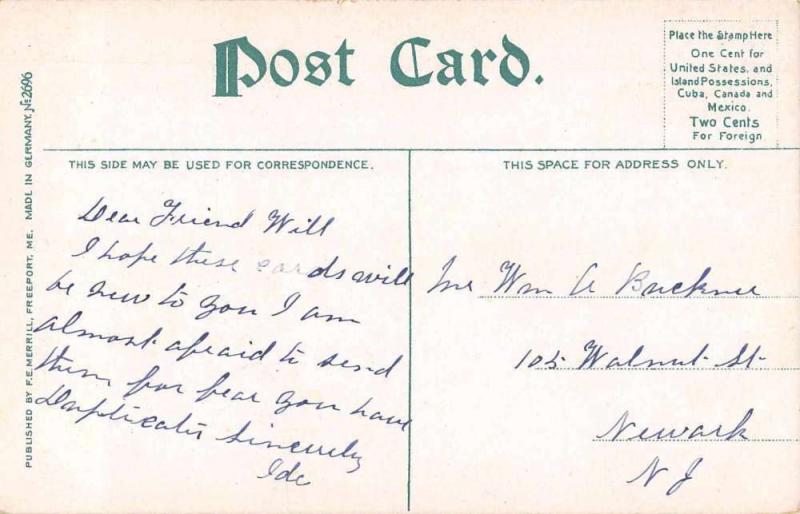 Post Card.
Place the Stamp Here
One Cent for
United States, and
Island Possessions,
Cuba, Canada and
Mexico.
Two Cents
For Foreign
PUBLISHED BY F.E. MERRILL, FREEPORT, ME. MADE IN GERMANY. No 2696
THIS SIDE MAY BE USED FOR CORRESPONDENCE.
Dear Friend Will
I hope these cards will
be new to you I am
almost afraid to send
them for fear you have
Duplicates Sincerely
THIS SPACE FOR ADDRESS ONLY.
Wm A
105 Walnut St
Newark
N J